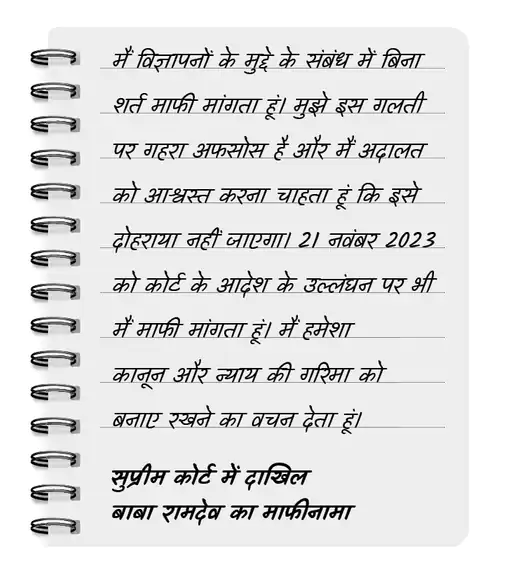 मैं विज्ञापनों के मुद्दे के संबंध में बिना
शर्त माफी मांगता हूं। मुझे इस गलती
पर गहरा अफसोस है और मैं अदालत
को आश्वस्त करना चाहता हूं कि इसे
दोहराया नहीं जाएगा। 21 नवंबर 2023
को कोर्ट के आदेश के उल्लंघन पर भी
मैं माफी मांगता हूं। मैं हमेशा
कानून और न्याय की गरिमा को
बनाए रखने का वचन देता हूं।
सुप्रीम कोर्ट में दाखिल
बाबा रामदेव का माफीनामा